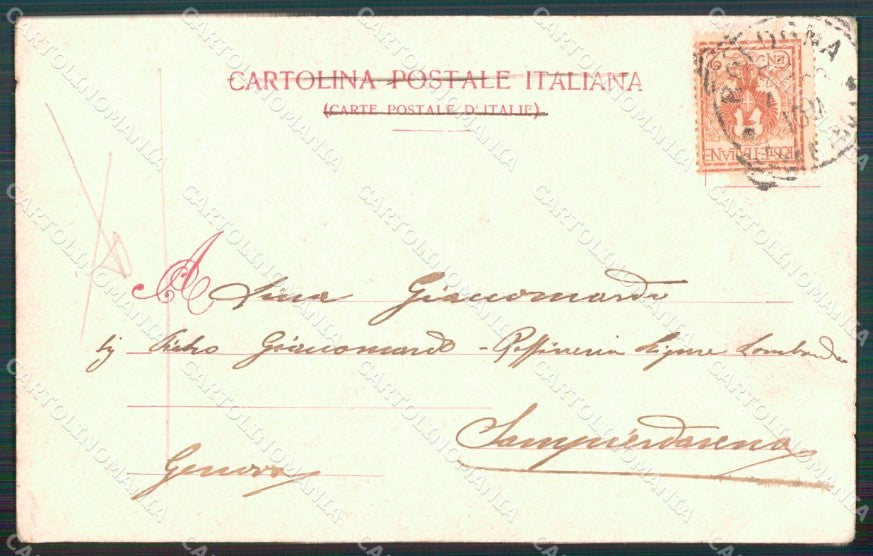 CARTOLINA POSTALE ITALIANA
(CARTE POSTALE D'ITALIE)
BOLOGNA
POSTE ITALIANE
A Lina Giacomardi
Pietro Giacomardi - Raffineria Ligure Lombarda
Sampierdarena
Genova
CARTOLINOMANIA